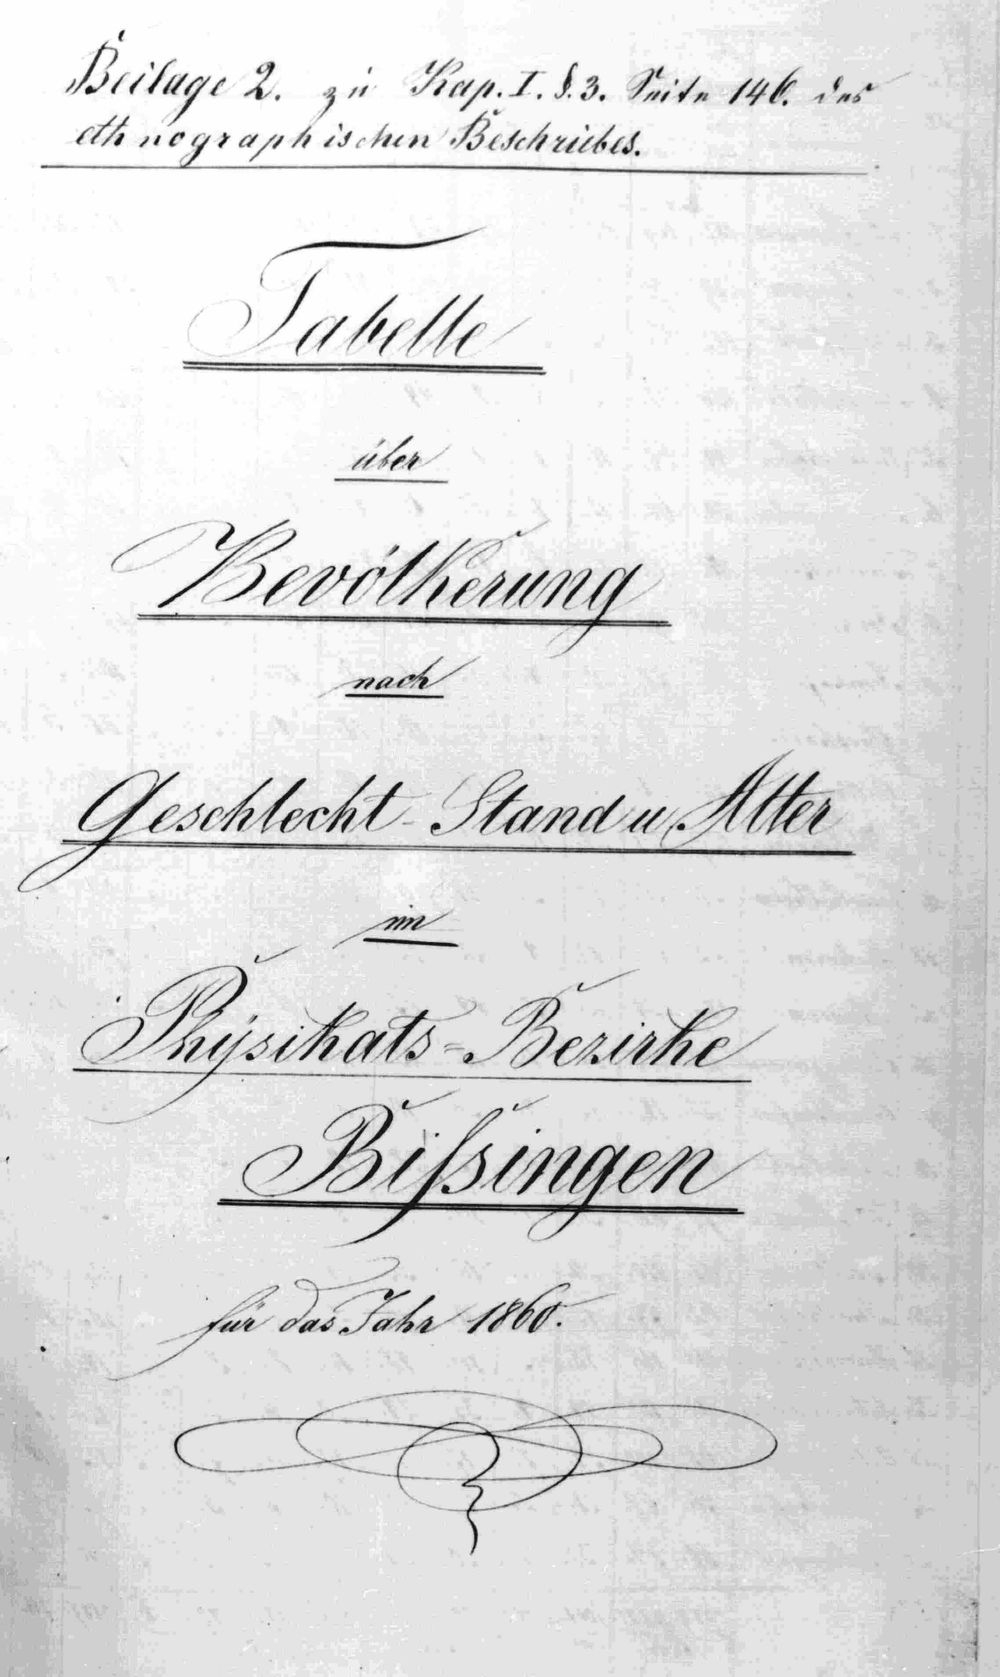 Beilage 2. zu Kap. I. §. 3. Seite 146. des
ethnographischen Beschriebes.
Tabelle
über
Bevölkerung
nach
Geschlecht - Stand u. Alter
im
Physikats=Bezirke
Bißingen
für das Jahr 1860.